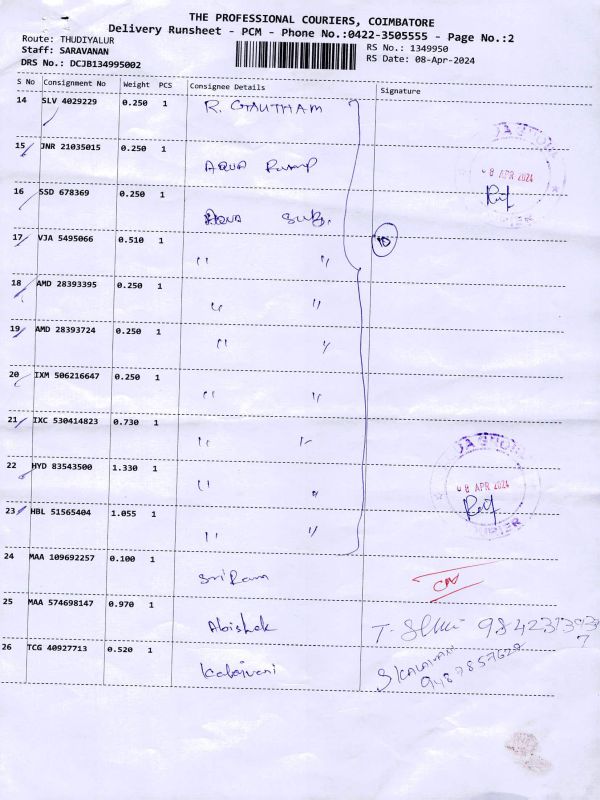 THE PROFESSIONAL COURIERS, COIMBATORE
Delivery Runsheet - PCM - Phone No.:0422-3505555 - Page No.:2
Route: THUDIYALUR
Staff: SARAVANAN
DRS No.: DCJB134995002
RS No.: 1349950
RS Date: 08-Apr-2024
S No Consignment No Weight PCS Consignee Details Signature
14 SLV 4029229 0.250 1 R. GAUTHAM
15 JNR 21035015 0.250 1 AQUA Pump
16 SSD 678369 0.250 1 AQUA Sub.
8 APR 2024
17 VJA 5495066 0.510 1 " " 10
18 AMD 28393395 0.250 1 " "
19 AMD 28393724 0.250 1 " "
20 IXM 506216647 0.250 1 " "
21 IXC 530414823 0.730 1 " "
22 HYD 83543500 1.330 1 " "
08 APR 2024
23 HBL 51565404 1.055 1 " "
24 MAA 109692257 0.100 1 Sri Ram
25 MAA 574698147 0.970 1 Abishek
26 TCG 40927713 0.520 1 Kalaivani S KALAIVANI